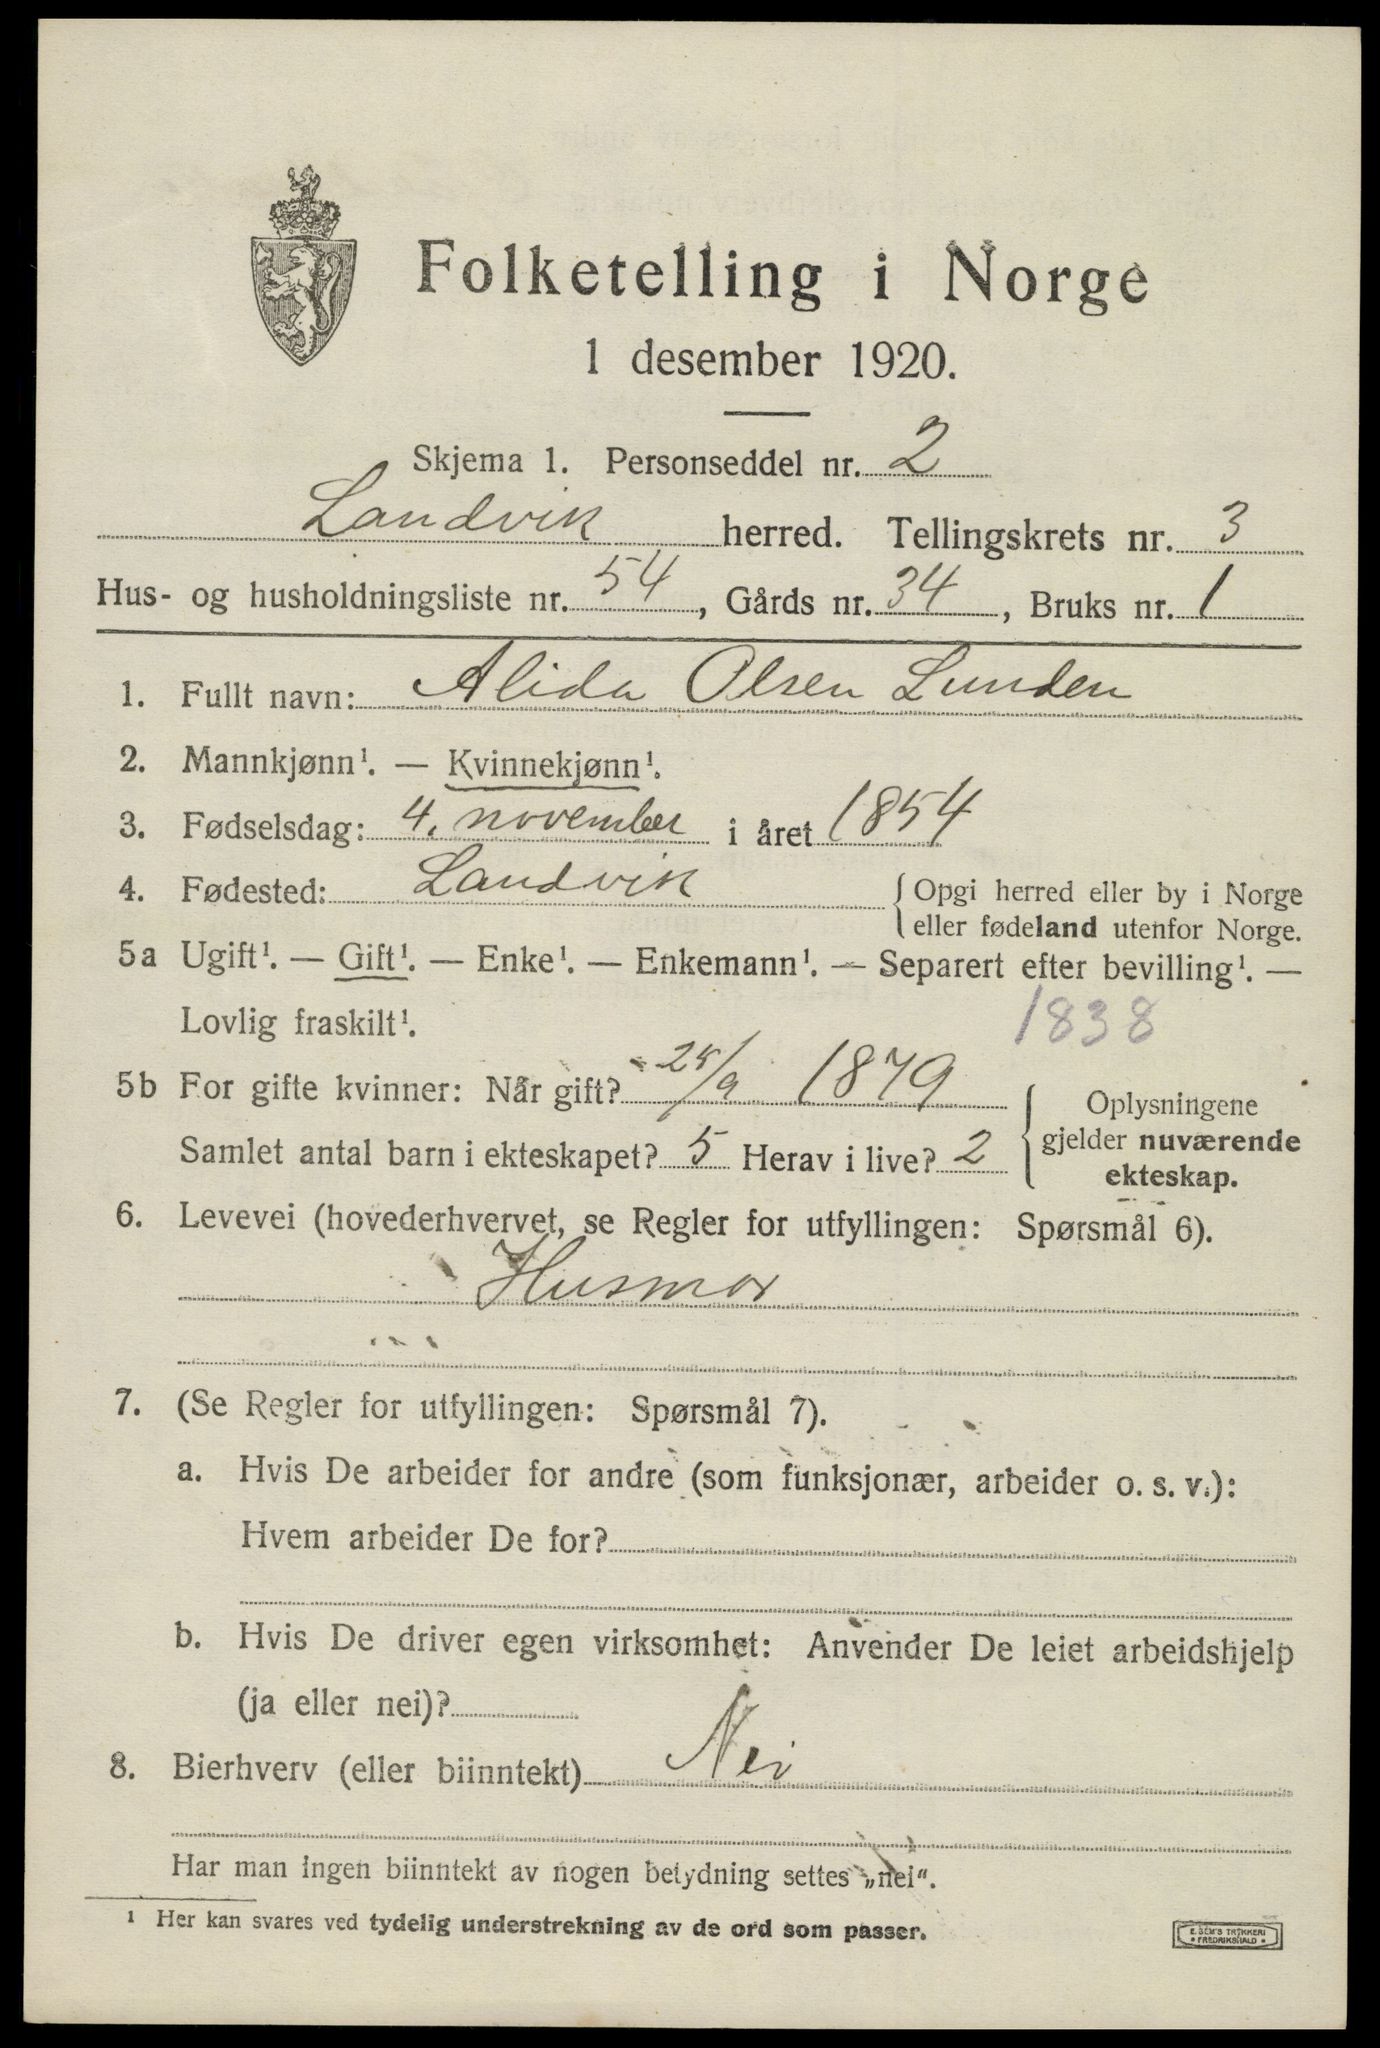 Folketelling i Norge
1 desember 1920.
Skjema 1. Personseddel nr. 2
Landvik herred. Tellingskrets nr. 3
Hus- og husholdningsliste nr. 54, Gårds nr. 34, Bruks nr. 1
1. Fullt navn: Alida Olsen Lunden
2. Mannkjønn¹. — Kvinnekjønn¹.
3. Fødselsdag: 4. november i året 1854
4. Fødested: Landvik { Opgi herred eller by i Norge
eller fødeland utenfor Norge.
5a Ugift¹. — Gift¹. — Enke¹. — Enkemann¹. — Separert efter bevilling¹. —
Lovlig fraskilt¹. 1838
5b For gifte kvinner: Når gift? 25/9 1879 { Oplysningene
gjelder nuværende
ekteskap.
Samlet antal barn i ekteskapet? 5 Herav i live? 2
6. Levevei (hovederhvervet, se Regler for utfyllingen: Spørsmål 6).
Husmor
7. (Se Regler for utfyllingen: Spørsmål 7).
a. Hvis De arbeider for andre (som funksjonær, arbeider o. s. v.):
Hvem arbeider De for?
b. Hvis De driver egen virksomhet: Anvender De leiet arbeidshjelp
(ja eller nei)?
8. Bierhverv (eller biinntekt) Nei
Har man ingen biinntekt av nogen betydning settes „nei“.
¹ Her kan svares ved tydelig understrekning av de ord som passer.
E. SEM'S TRYKKERI
• FREDRIKSHALD •